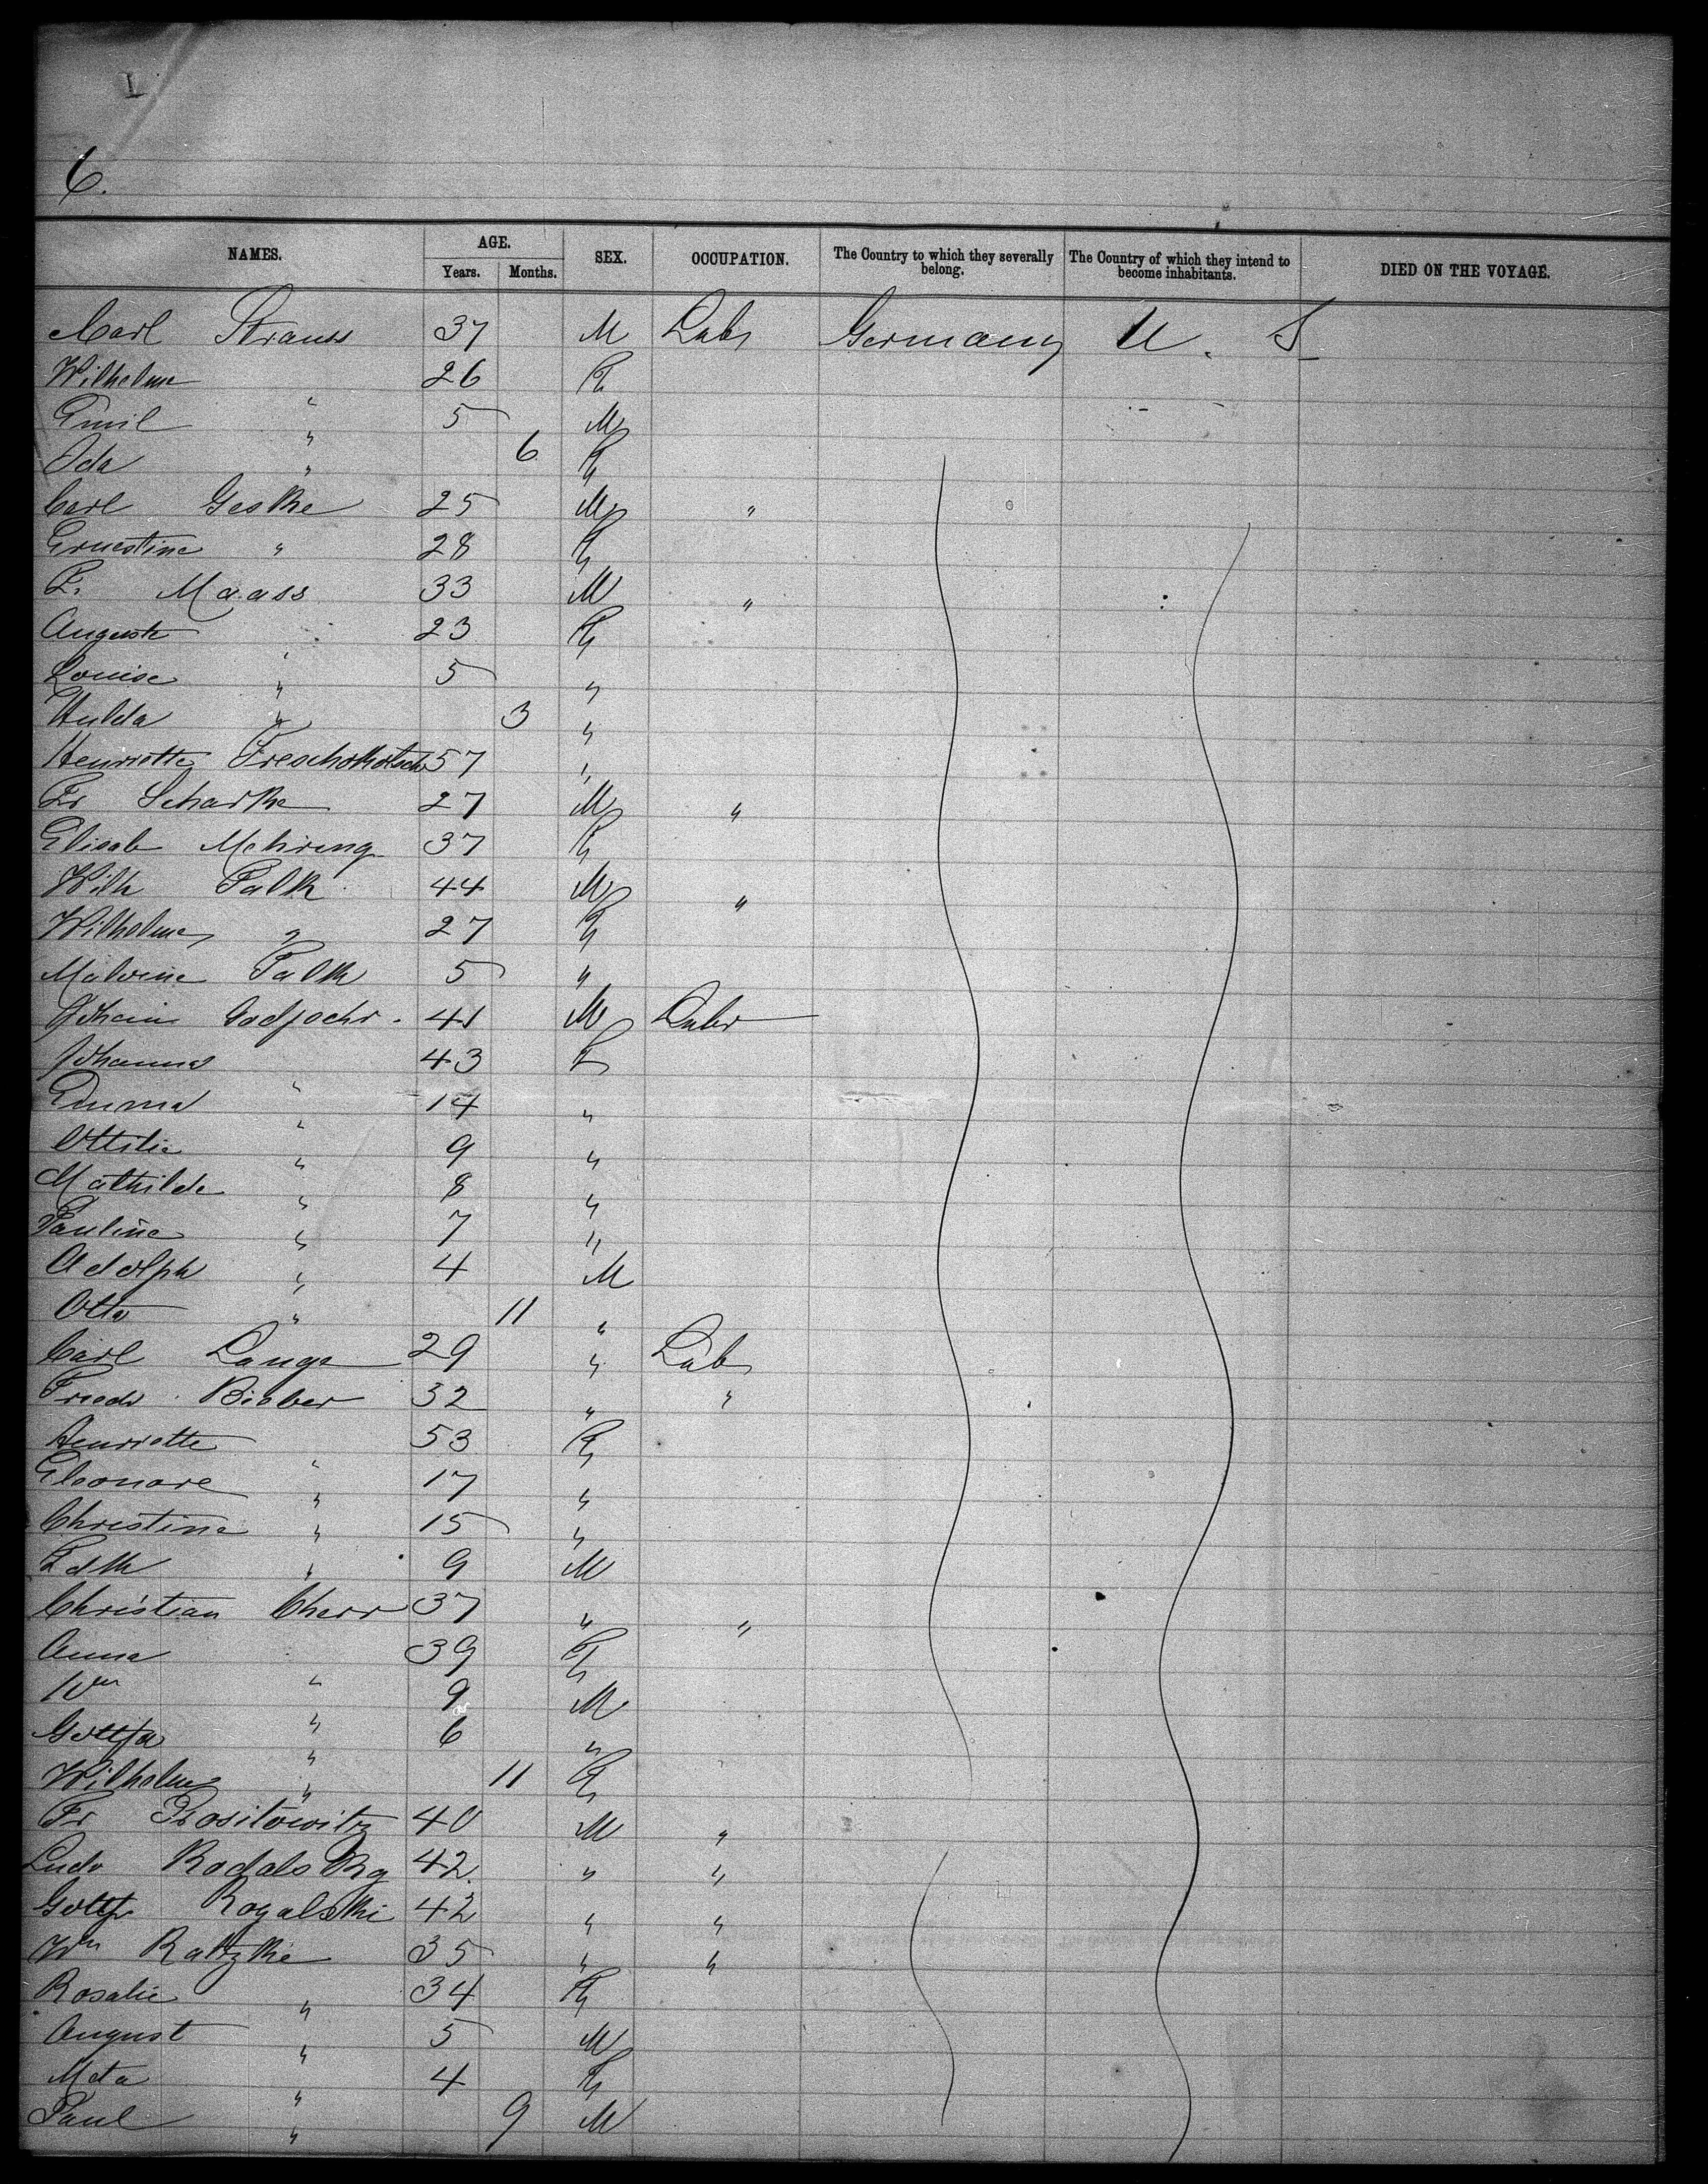 6.
NAMES. AGE. SEX. OCCUPATION. The Country to which they severally belong. The Country of which they intend to become inhabitants. DIED ON THE VOYAGE.
Years. Months.
Carl Strauss 37 M Labr Germany U. S
Wilhelme " 26 F
Emil " 5 M
Ida " 6 F
Carl Geske 25 M "
Ernestine " 28 F
F. Maass 33 M "
Auguste " 23 F
Louise " 5 "
Hulda " 3 "
Henriette 57 "
Fr Scharke 27 M "
Elisab Mehring 37 F
Wilh Falk 44 M "
Wilhelme " 27 F
Malvine Falk 5 "
41 M Labr
Johanna " 43 F
Emma " 14 "
Ottilie " 9 "
Mathilde " 8 "
Pauline " 7 "
Adolph " 4 M
Otto " 11 "
Carl Lange 29 " Lab
Friedr Bieber 32 " "
Henriette " 53 F
Eleonore " 17 "
Christine " 15 "
" 9 M
Christian 37 " "
Anna " 39 F
Wm " 9 M
" 6 "
Wilhelme " 11 F
Fr 40 M "
Ludv 42 " "
Gottfr Rogalski 42 " "
Wm Ratzke 35 " "
Rosalie " 34 F
August " 5 M
Meta " 4 F
Paul " 9 M